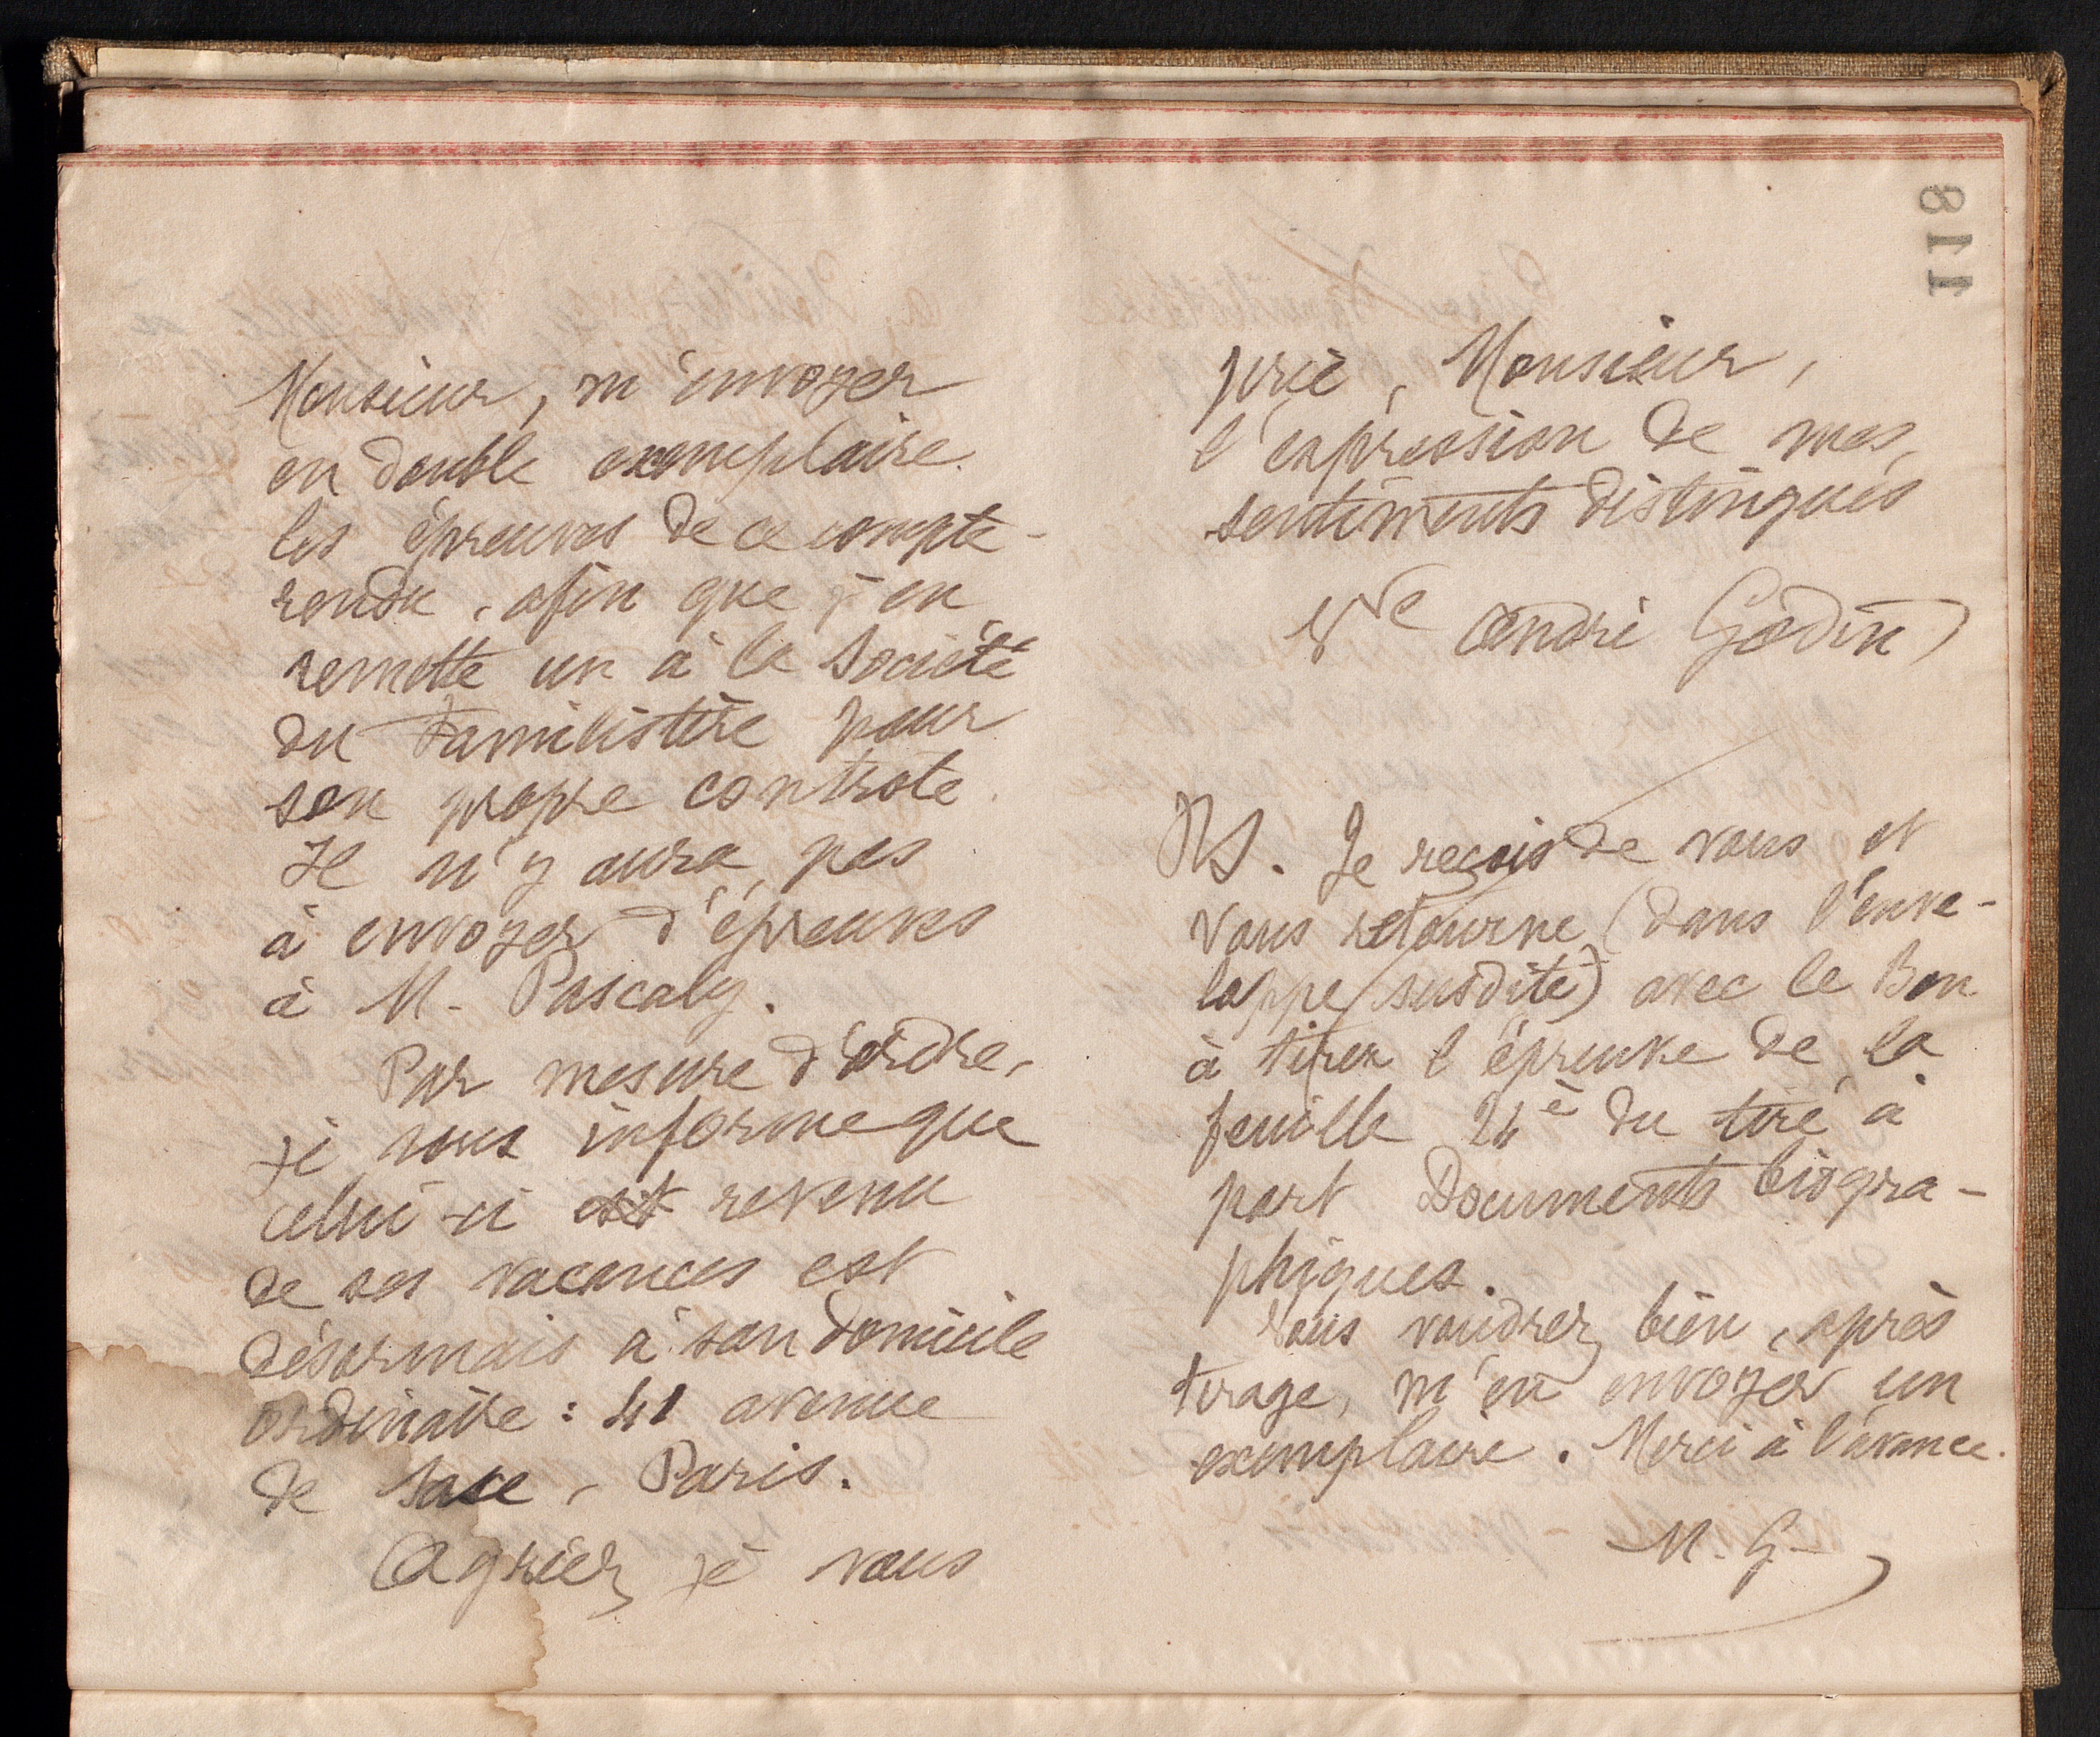 118
Monsieur, m'envoyer
en double exemplaire
les épreuves de ce compte-
rendu, afin que j'en
remette un à la Société
du Familistère pour
son propre contrôle.
Il n'y aura pas
à envoyer d'épreuves
à M. Pascaly.
Par mesure d'ordre,
je vous informe que
celui-ci est revenu
de ses vacances est
désormais à son domicile
ordinaire : 41 avenue
de Saxe, Paris.
Agréez je vous
prie, Monsieur,
l'expression de mes
sentiments distingués
Vve André Godin
PS. Je reçois de vous et
vous retourne (dans l'enve-
loppe susdite) avec le Bon
à tirer l'épreuve de la
feuille 24è du tiré à
part Documents biogra-
phiques.
Vous voudrez bien, après
tirage, m'en envoyer un
exemplaire. Merci à l'avance.
M. G.